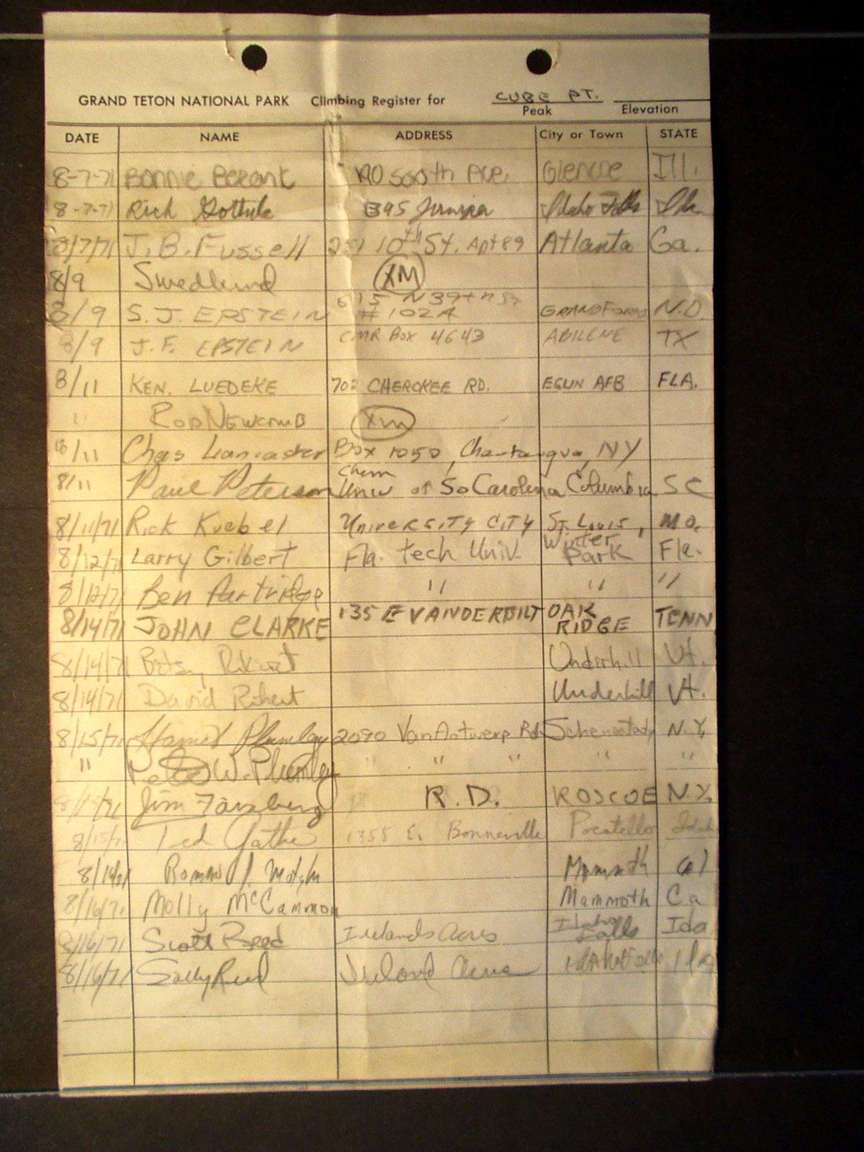 CUBE PT.
GRAND TETON NATIONAL PARK Climbing Register for Peak Elevation
DATE NAME ADDRESS City or Town STATE
8-7-71 Bonnie Glencoe Ill.
8-7-71 Rich 395 Idaho Falls Ida
8/7/71 J. B. Fussell 10th St. Apt 89 Atlanta Ga.
8/9 Swedlund XM
8/9 S. J. EPSTEIN 615 N 39th St #102A GRAND FORKS N.D.
8/9 J. F. EPSTEIN CMR Box 4643 ABILENE TX
8/11 KEN. LUEDEKE 702 CHEROKEE RD. EGLIN AFB FLA.
" ROD NEWCOMB XM
8/11 Chas Lancaster Box 1050, Chautauqua, NY
8/11 Paul Peterson Chem Univ of So Carolina Columbia SC
8/11/71 Rick Kuebel UNIVERSITY CITY ST. LOUIS, MO.
8/12/71 Larry Gilbert Fla. tech Univ. Winter Park Fla.
8/12/71 Ben Partridge " " "
8/14/71 JOHN CLARKE 135 E VANDERBILT OAK RIDGE TENN
8/14/71 Underhill Vt.
8/14/71 David Underhill Vt.
8/15/71 Plumley 2090 Van Antwerp Rd Schenectady N.Y.
" W. Plumley " " " "
Jim R.D. ROSCOE N.Y.
8/15/71 Ted 1355 E. Bonneville Pocatello Idah
8/16/71 Mammoth Cal
8/16/71 Molly McCammon Mammoth Ca
8/16/71 Scott Reed Acres Idaho Falls Ida
8/16/71 Sally Reed Idaho Falls Ida